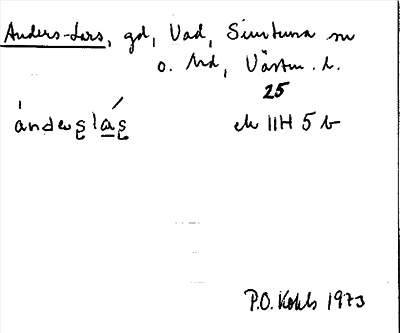 Anders-Lars, gd, Vad, Simtuna sn
o. hd, Västm. l.
25
ánderslás
ek IIH 5 b
P.O. Kohls 1973